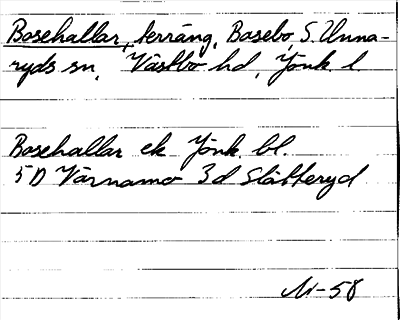 Bosehallar, terräng, Bosebo, S. Unna-
ryds sn, Västbo hd, Jönk l
Bosehallar ek Jönk. bl.
5 D Värnamo 3d Slätteryd
N-58